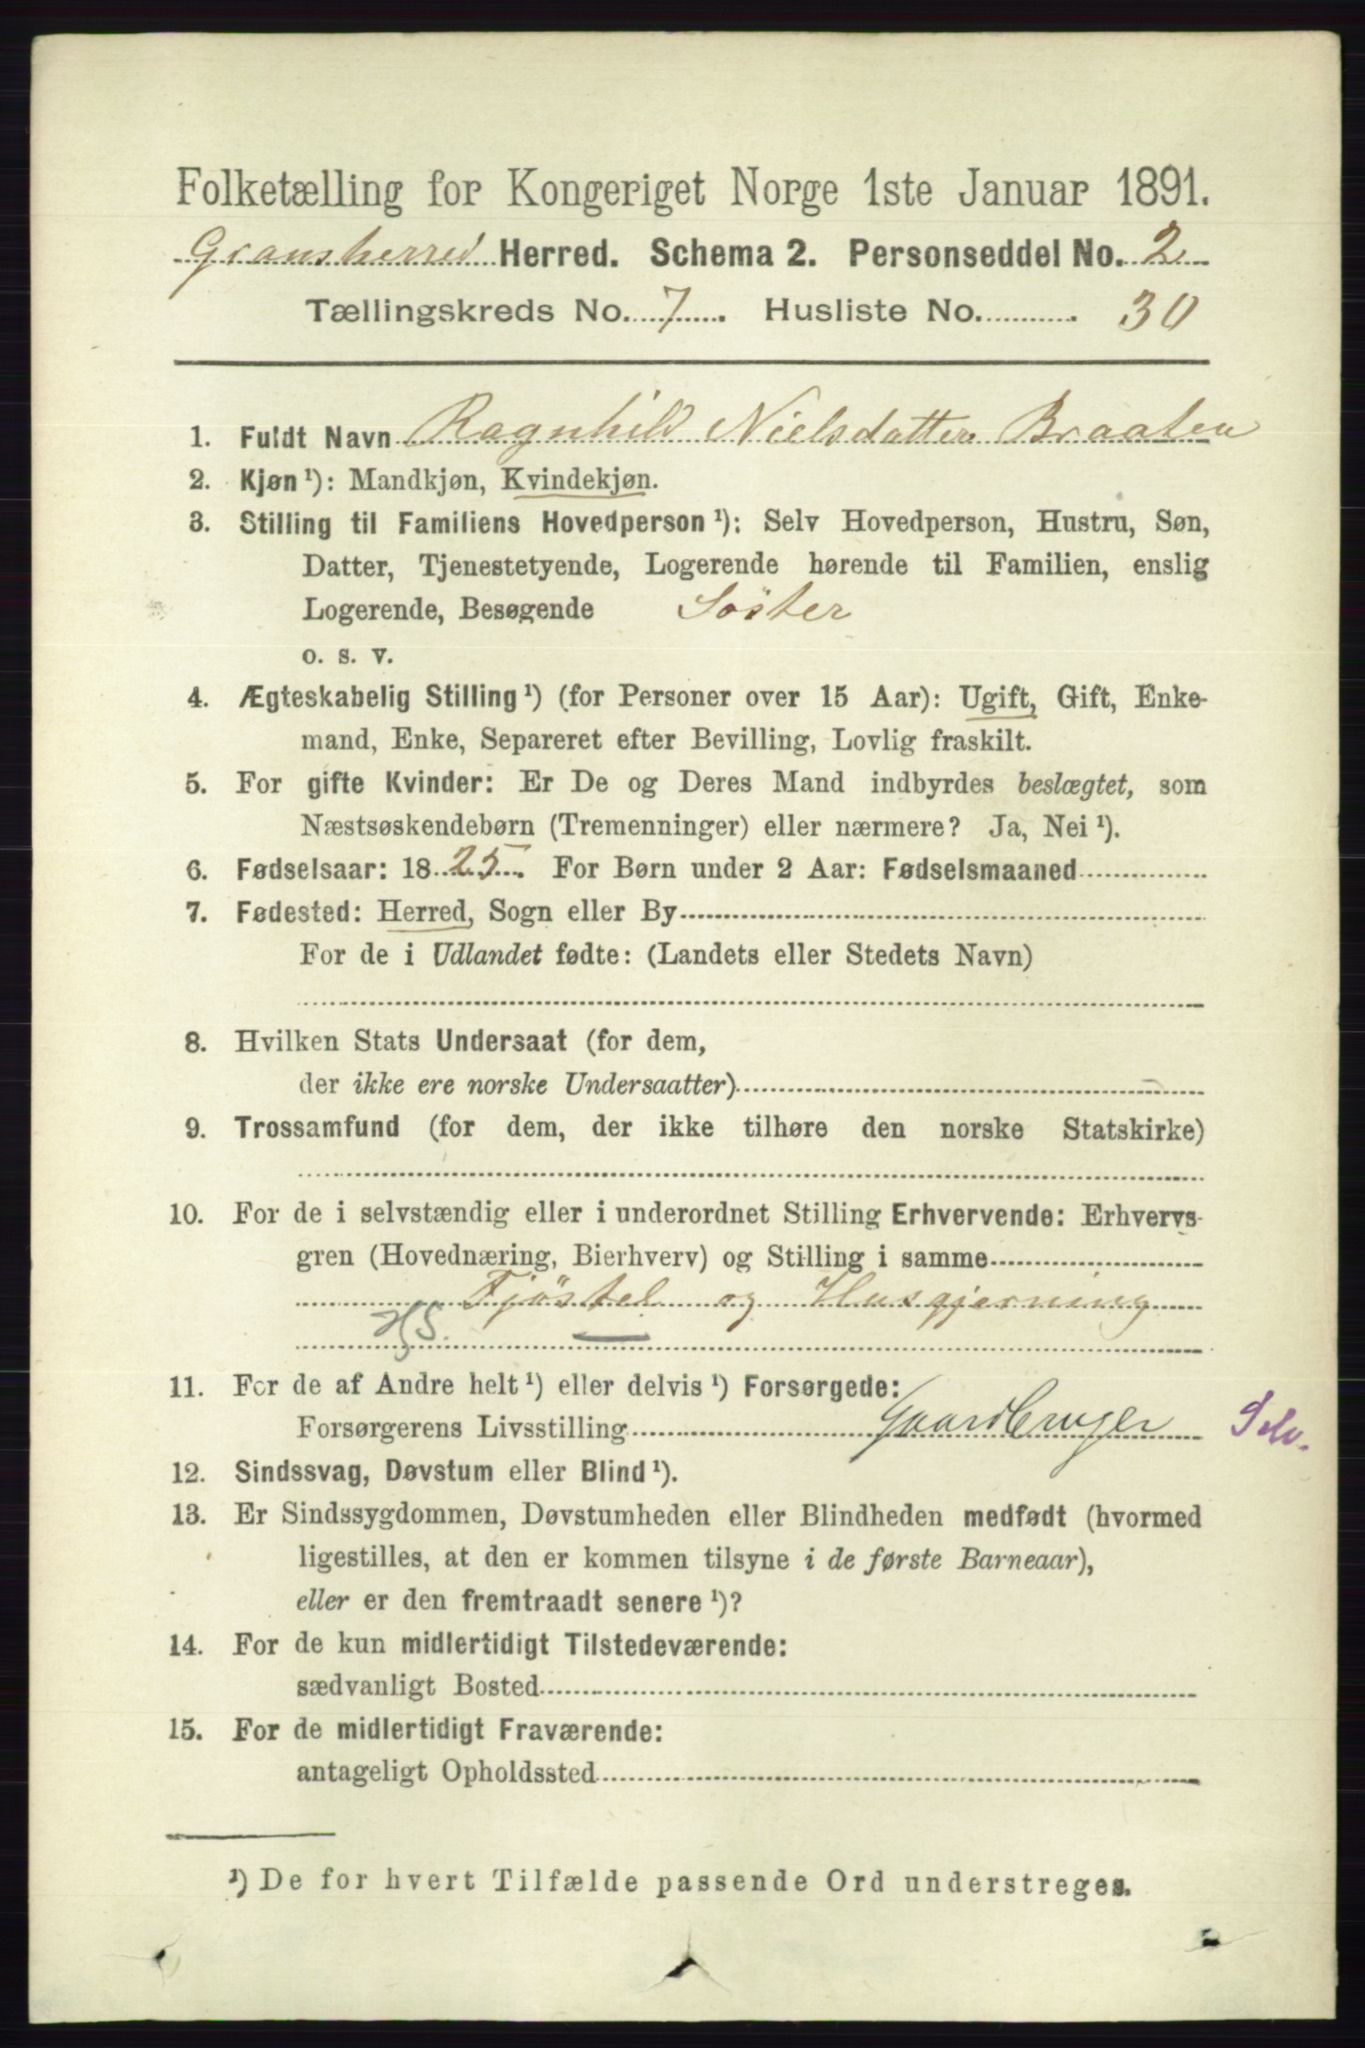 Folketælling for Kongeriget Norge 1ste Januar 1891.
Gransherred Herred. Schema 2. Personseddel No. 2
Tællingskreds No. 7. Husliste No. 30
1. Fuldt Navn Ragnhild Nielsdatter Braaten
2. Kjøn¹): Mandkjøn, Kvindekjøn.
3. Stilling til Familiens Hovedperson¹): Selv Hovedperson, Hustru, Søn,
Datter, Tjenestetyende, Logerende hørende til Familien, enslig
Logerende, Besøgende Söster
o. s. v.
4. Ægteskabelig Stilling¹) (for Personer over 15 Aar): Ugift, Gift, Enke-
mand, Enke, Separeret efter Bevilling, Lovlig fraskilt.
5. For gifte Kvinder: Er De og Deres Mand indbyrdes beslægtet, som
Næstsøskendebørn (Tremenninger) eller nærmere? Ja, Nei¹).
6. Fødselsaar: 1825. For Børn under 2 Aar: Fødselsmaaned
7. Fødested: Herred, Sogn eller By
For de i Udlandet fødte: (Landets eller Stedets Navn)
8. Hvilken Stats Undersaat (for dem,
der ikke ere norske Undersaatter)
9. Trossamfund (for dem, der ikke tilhøre den norske Statskirke)
10. For de i selvstændig eller i underordnet Stilling Erhvervende: Erhvervs-
gren (Hovednæring, Bierhverv) og Stilling i samme
Fjöstel og Husgjerning
11. For de af Andre helt¹) eller delvis¹) Forsørgede:
Forsørgerens Livsstilling Gaardbruger Selv.
12. Sindssvag, Døvstum eller Blind¹).
13. Er Sindssygdommen, Døvstumheden eller Blindheden medfødt (hvormed
ligestilles, at den er kommen tilsyne i de første Barneaar),
eller er den fremtraadt senere¹)?
14. For de kun midlertidigt Tilstedeværende:
sædvanligt Bosted
15. For de midlertidigt Fraværende:
antageligt Opholdssted
¹) De for hvert Tilfælde passende Ord understreges.